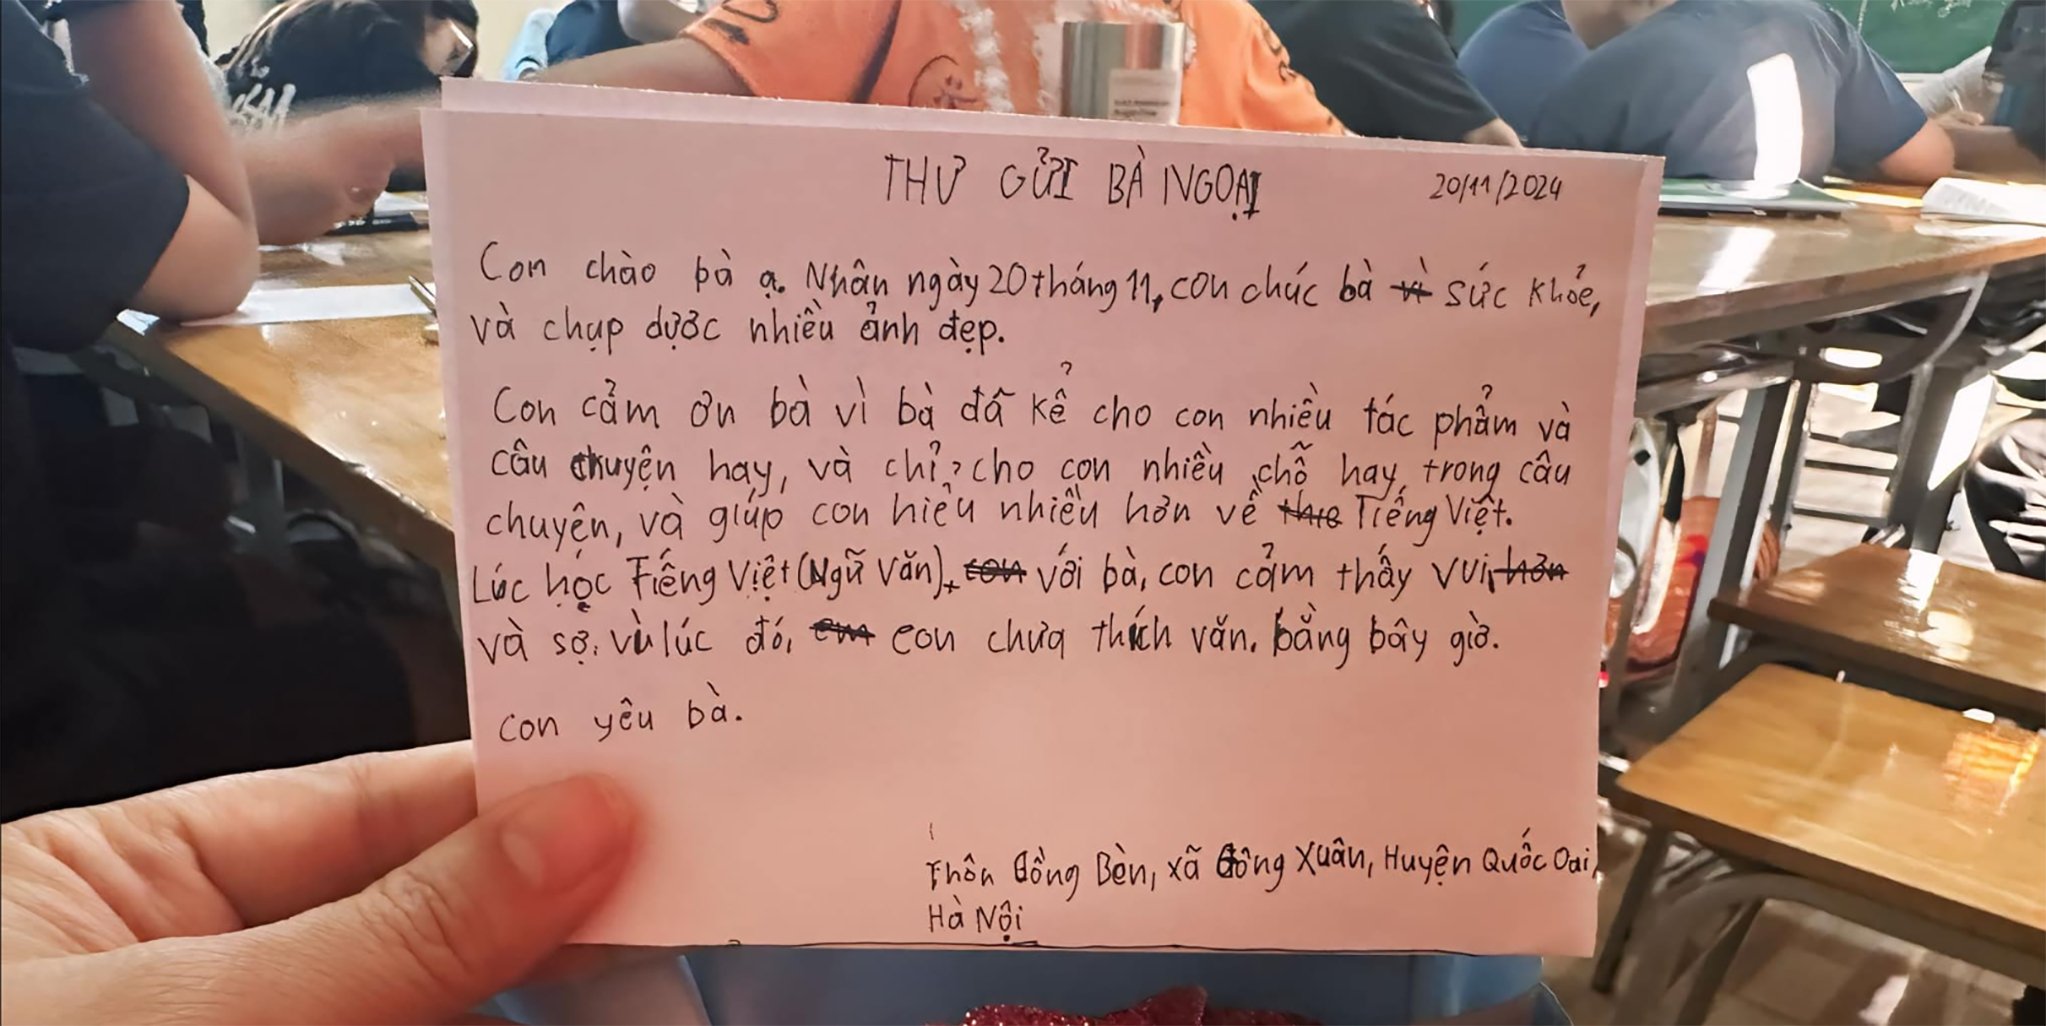 THƯ GỬI BÀ NGOẠI
20/11/2024
Con chào bà ạ. Nhân ngày 20 tháng 11, con chúc bà sức khỏe,
và chụp được nhiều ảnh đẹp.
Con cảm ơn bà vì bà đã kể cho con nhiều tác phẩm và
câu chuyện hay, và chỉ cho con nhiều chỗ hay trong câu
chuyện, và giúp con hiểu nhiều hơn về Tiếng Việt.
Lúc học Tiếng Việt (Ngữ Văn), với bà, con cảm thấy vui,
và sợ, vì lúc đó, con chưa thích văn bằng bây giờ.
con yêu bà.
Thôn Đồng Bèn, xã Đông Xuân, Huyện Quốc Oai,
Hà Nội